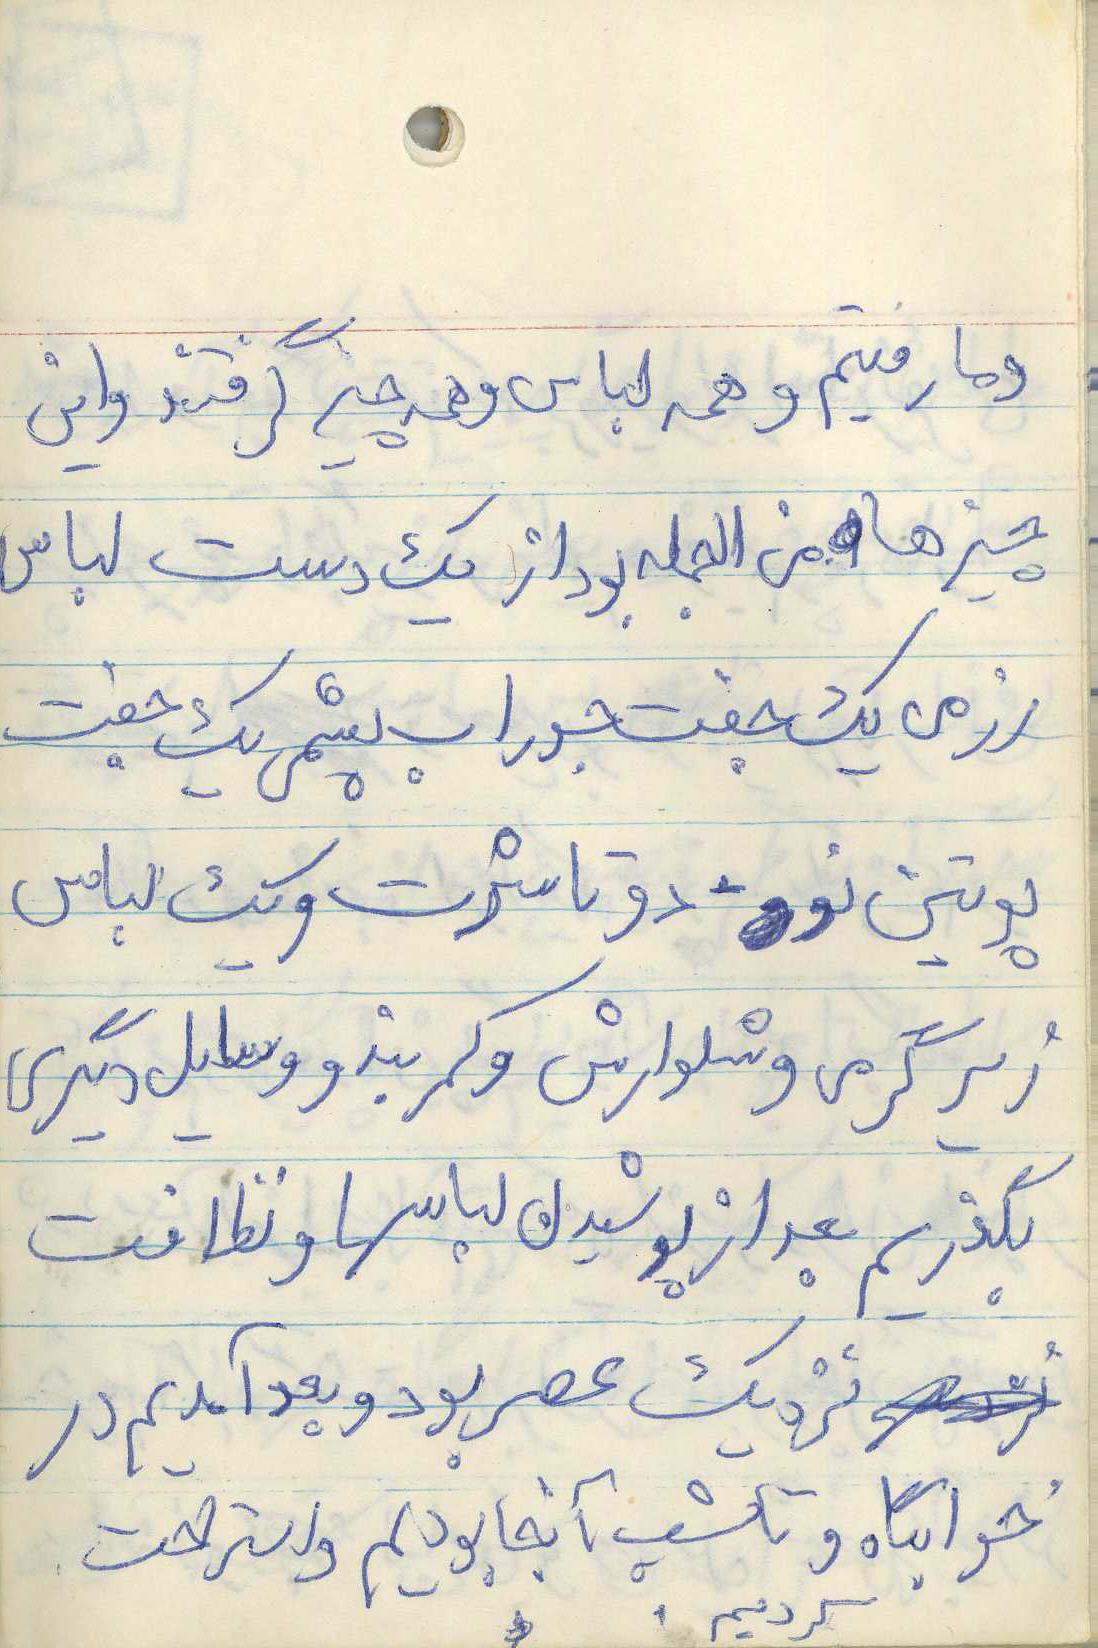 و ما رفتیم و همه لباس و همه چیز گرفتند و این
چیزها من الجمله بود از یک دست لباس
رزمی یک جفت جوراب پشمی یک جفت
پوتین نو و دو تا شرت و یک لباس
زیر گرمی و شلوارش و کمربند و وسایل دیگری
بگذریم بعد از پوشیدن لباسها و نظافت
نزدیک عصر بود و بعد آمدیم در
خوابگاه و تا شب آنجا بودیم و استراحت
کردیم.